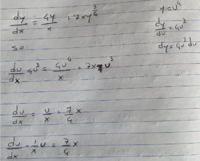 dy/dx = 4y/x + 7xy^(3/4)
y = u^4
dy/du = 4u^3
dy = 4u^3 du
so
du/dx 4u^3 = 4u^4/x + 7x u^3
du/dx = u/x + 7/4 x
du/dx - 1/x u = 7/4 x